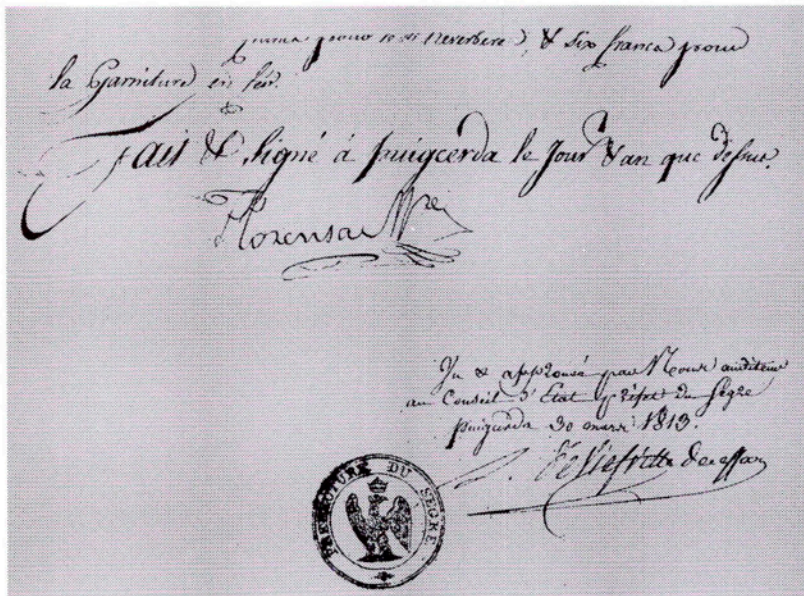 pour le dit Reverbere, & six francs pour
la Garniture en fer.
Fait & signé à puigcerda le Jour & an que dessus.
Florensa
Vu & approuvé par Nous auditeur
au Conseil d'Etat préfet du Sègre
puigcerda 30 mars 1813.
PREFECTURE DU SEGRE